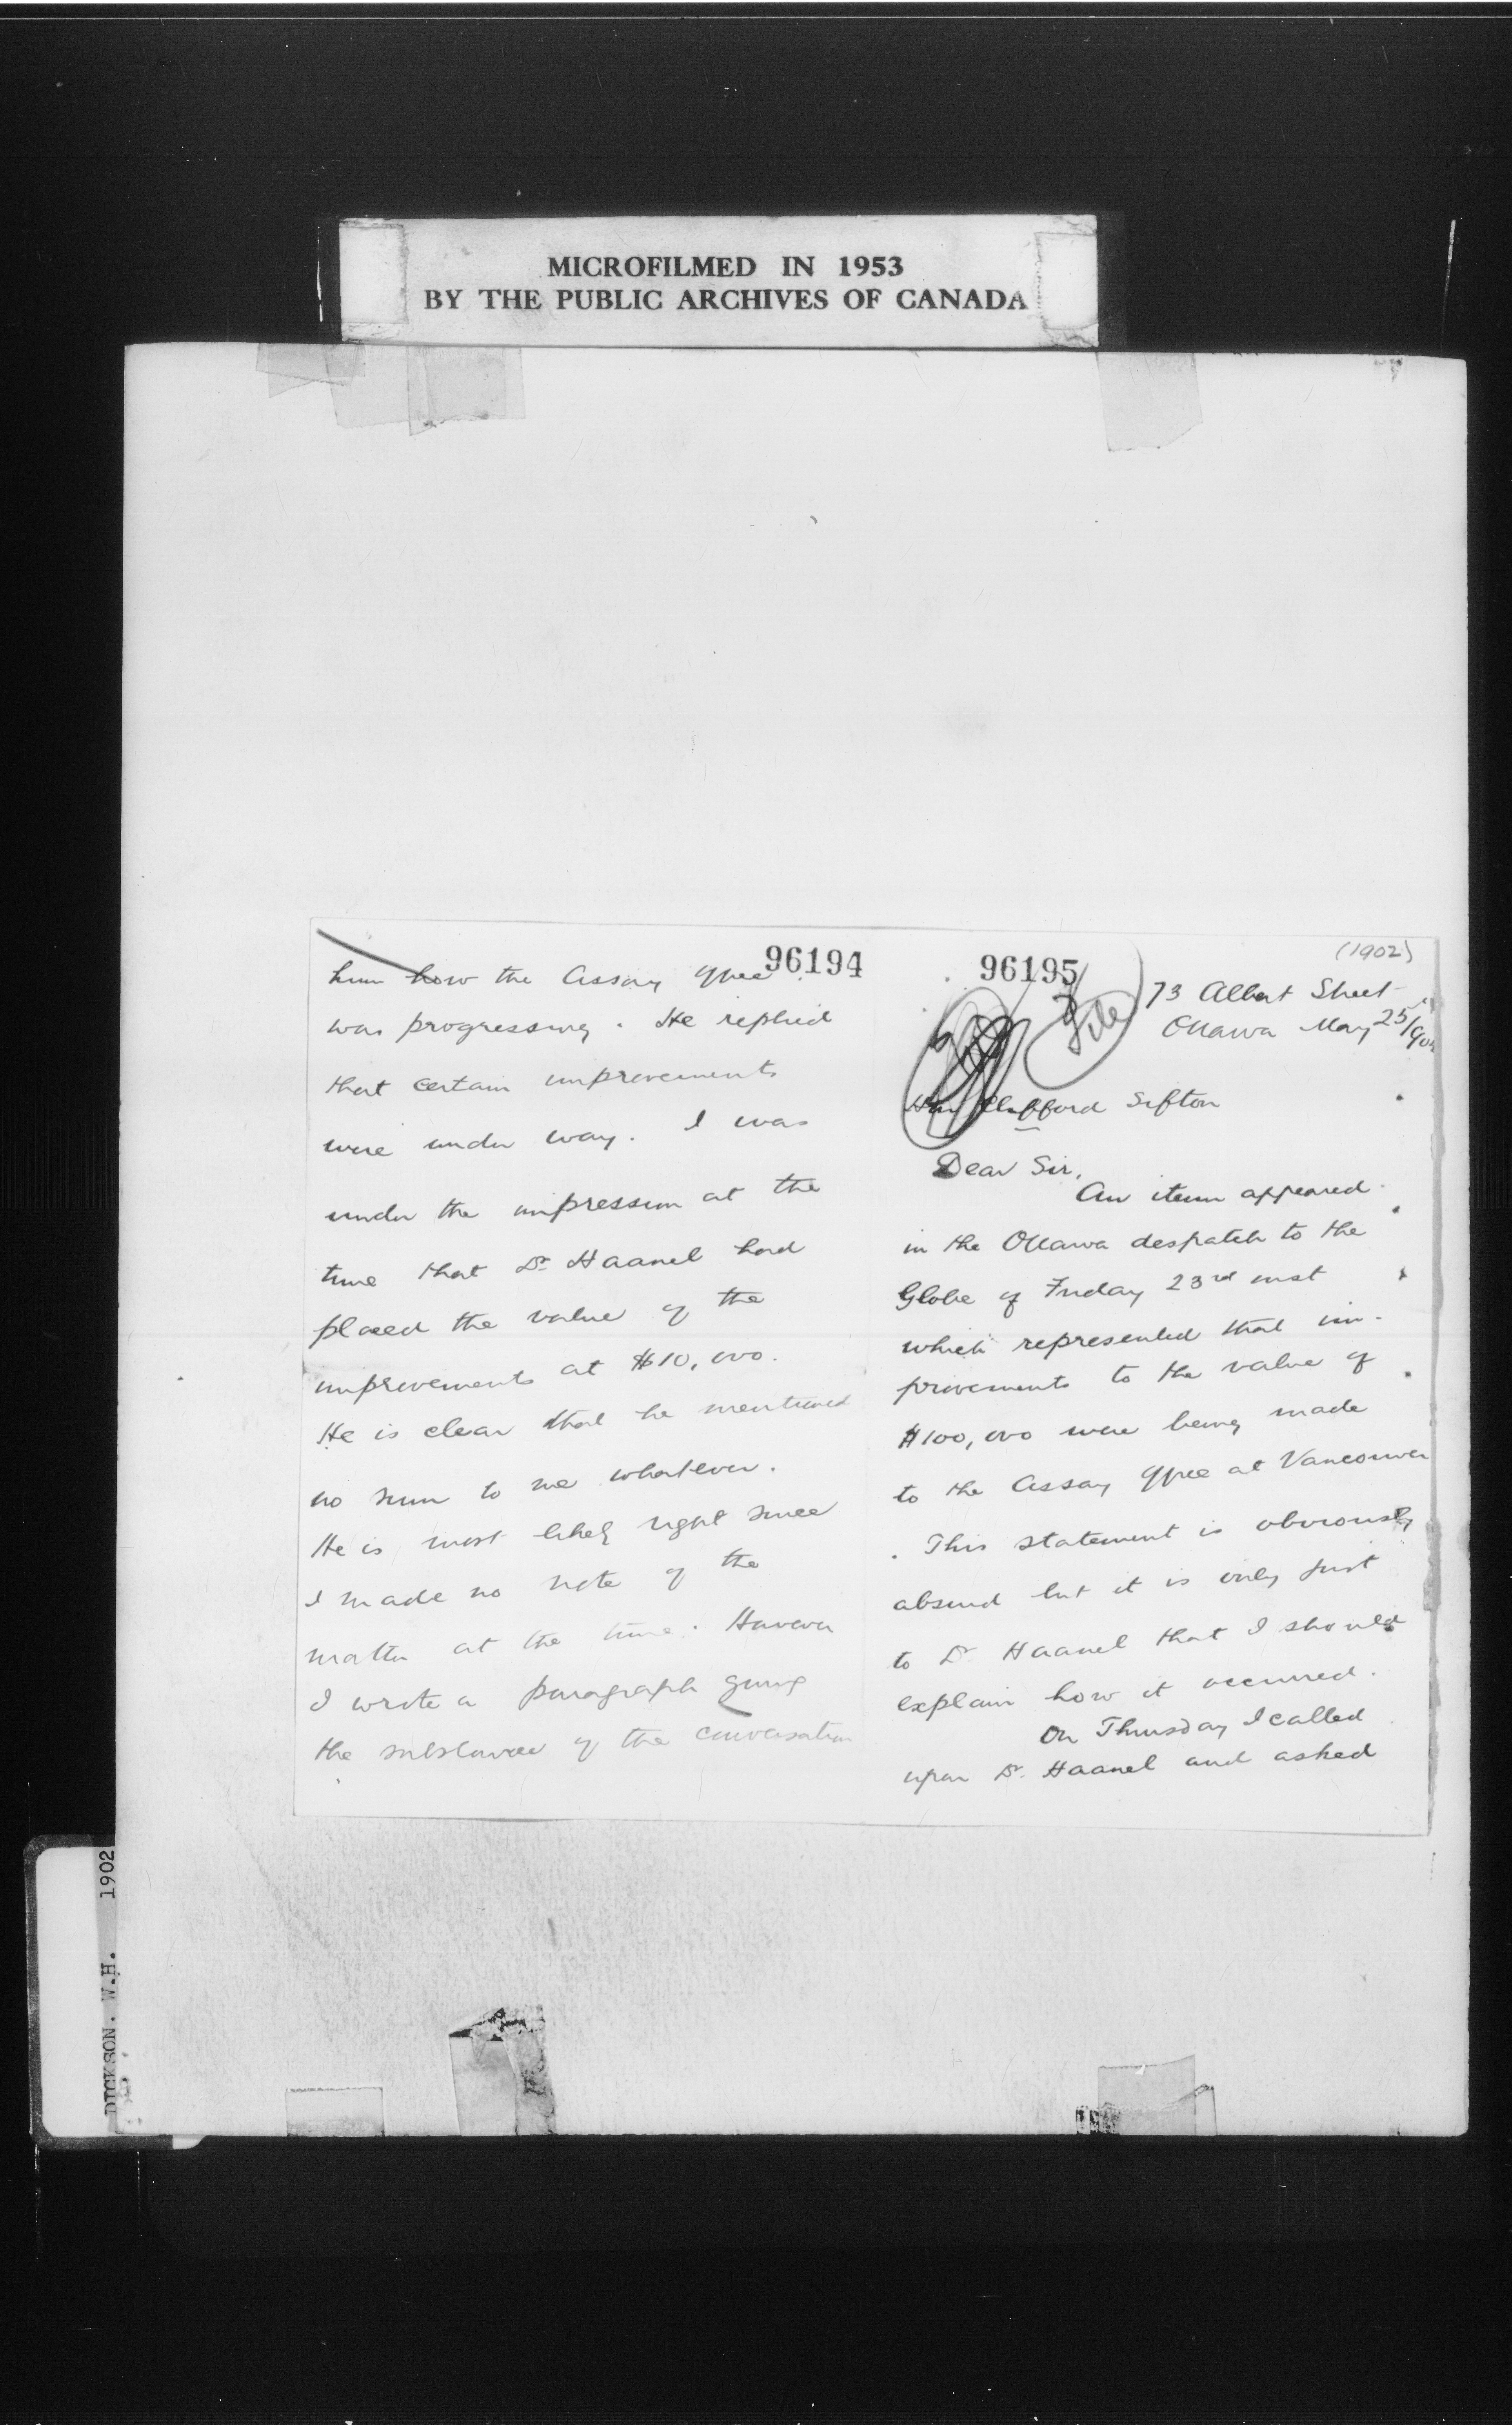 MICROFILMED IN 1953
BY THE PUBLIC ARCHIVES OF CANADA
96194
him how the Assay Office
was progressing. He replied
that certain improvements
were under way. I was
under the impression at the
time that Dr Haanel had
placed the value of the
improvements at $10,000.
He is clear that he mentioned
no sum to me whatever.
He is most likely right since
I made no note of the
matter at the time. However
I wrote a paragraph giving
the substance of the conversation
96195
(1902)
File
73 Albert Street
Ottawa May 25/902
Hon Clifford Sifton
Dear Sir,
An item appeared
in the Ottawa despatch to the
Globe of Friday 23rd inst
which represented that im-
provements to the value of
$100,000 were being made
to the Assay Office at Vancouver
. This statement is obviously
absurd but it is only just
to Dr Haanel that I should
explain how it occurred.
On Thursday I called
upon Dr. Haanel and asked
DICKSON. W.H. 1902